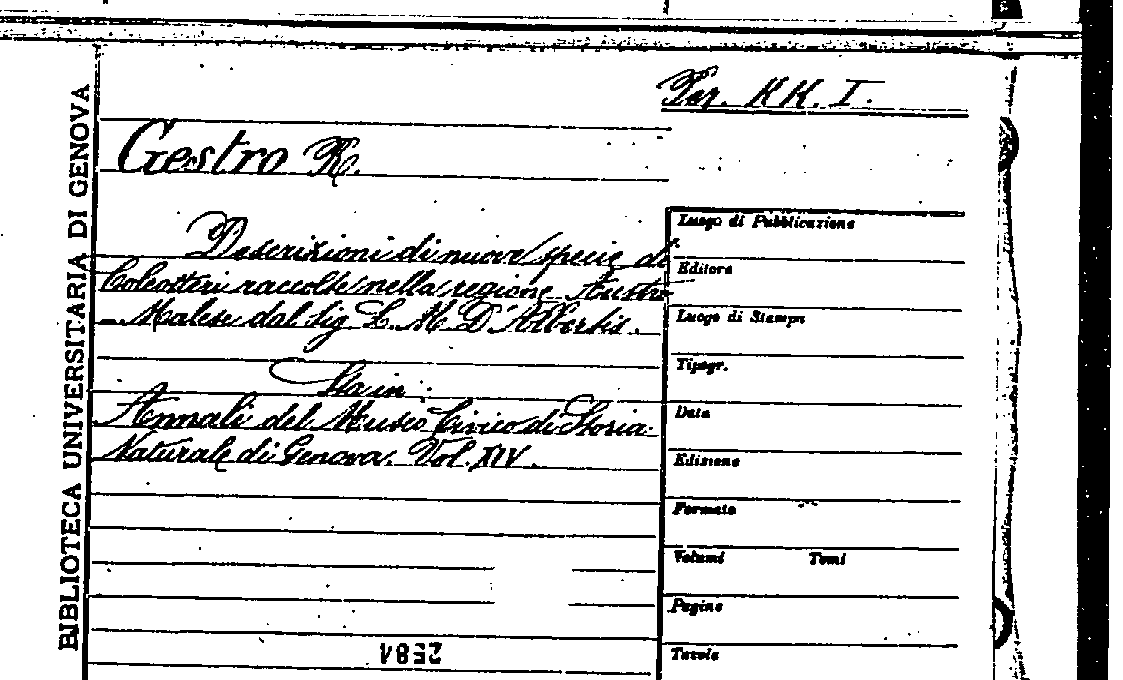 Per. KK. I.
Gestro R.
Descrizioni di nuove specie di
Coleotteri raccolte nella regione Austro
-Malese dal sig L. M. D'Albertis.
Sta in:
Annali del Museo Civico di Storia
Naturale di Genova. Vol. XIV.
BIBLIOTECA UNIVERSITARIA DI GENOVA
Luogo di Pubblicazione
Editore
Luogo di Stampa
Tipogr.
Data
Edizione
Formato
Volumi Tomi
Pagine
Tavole
2584